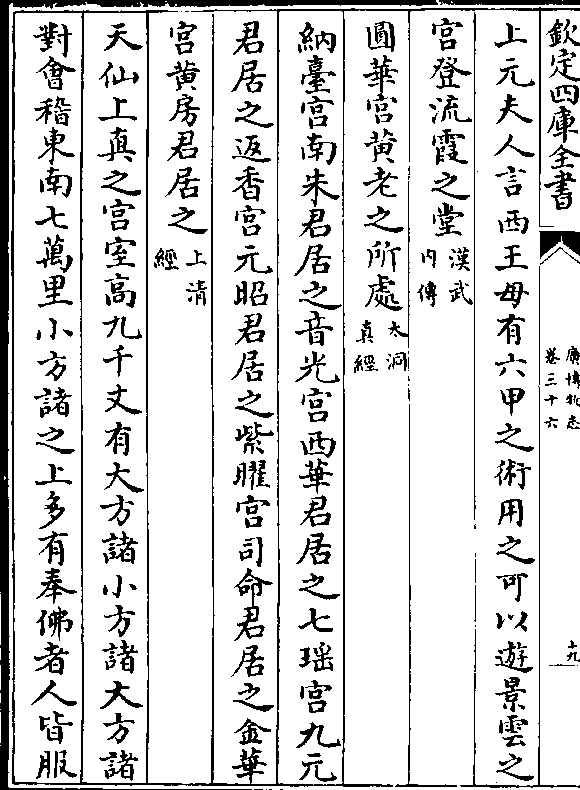 欽定四庫全書
廣博物志
卷三十六
十九
上元夫人言西王母有六甲之術用之可以遊景雲之
宫登流霞之堂漢武内傳
圓華宫黄老之所處大洞真經
納臺宫南朱君居之音光宫西華君居之七瑶宫九元
君居之返香宫元昭君居之紫曜宫司命君居之金華
宫黄房君居之上清經
天仙上真之宫室高九千丈有大方諸小方諸大方諸
對會稽東南七萬里小方諸之上多有奉佛者人皆服